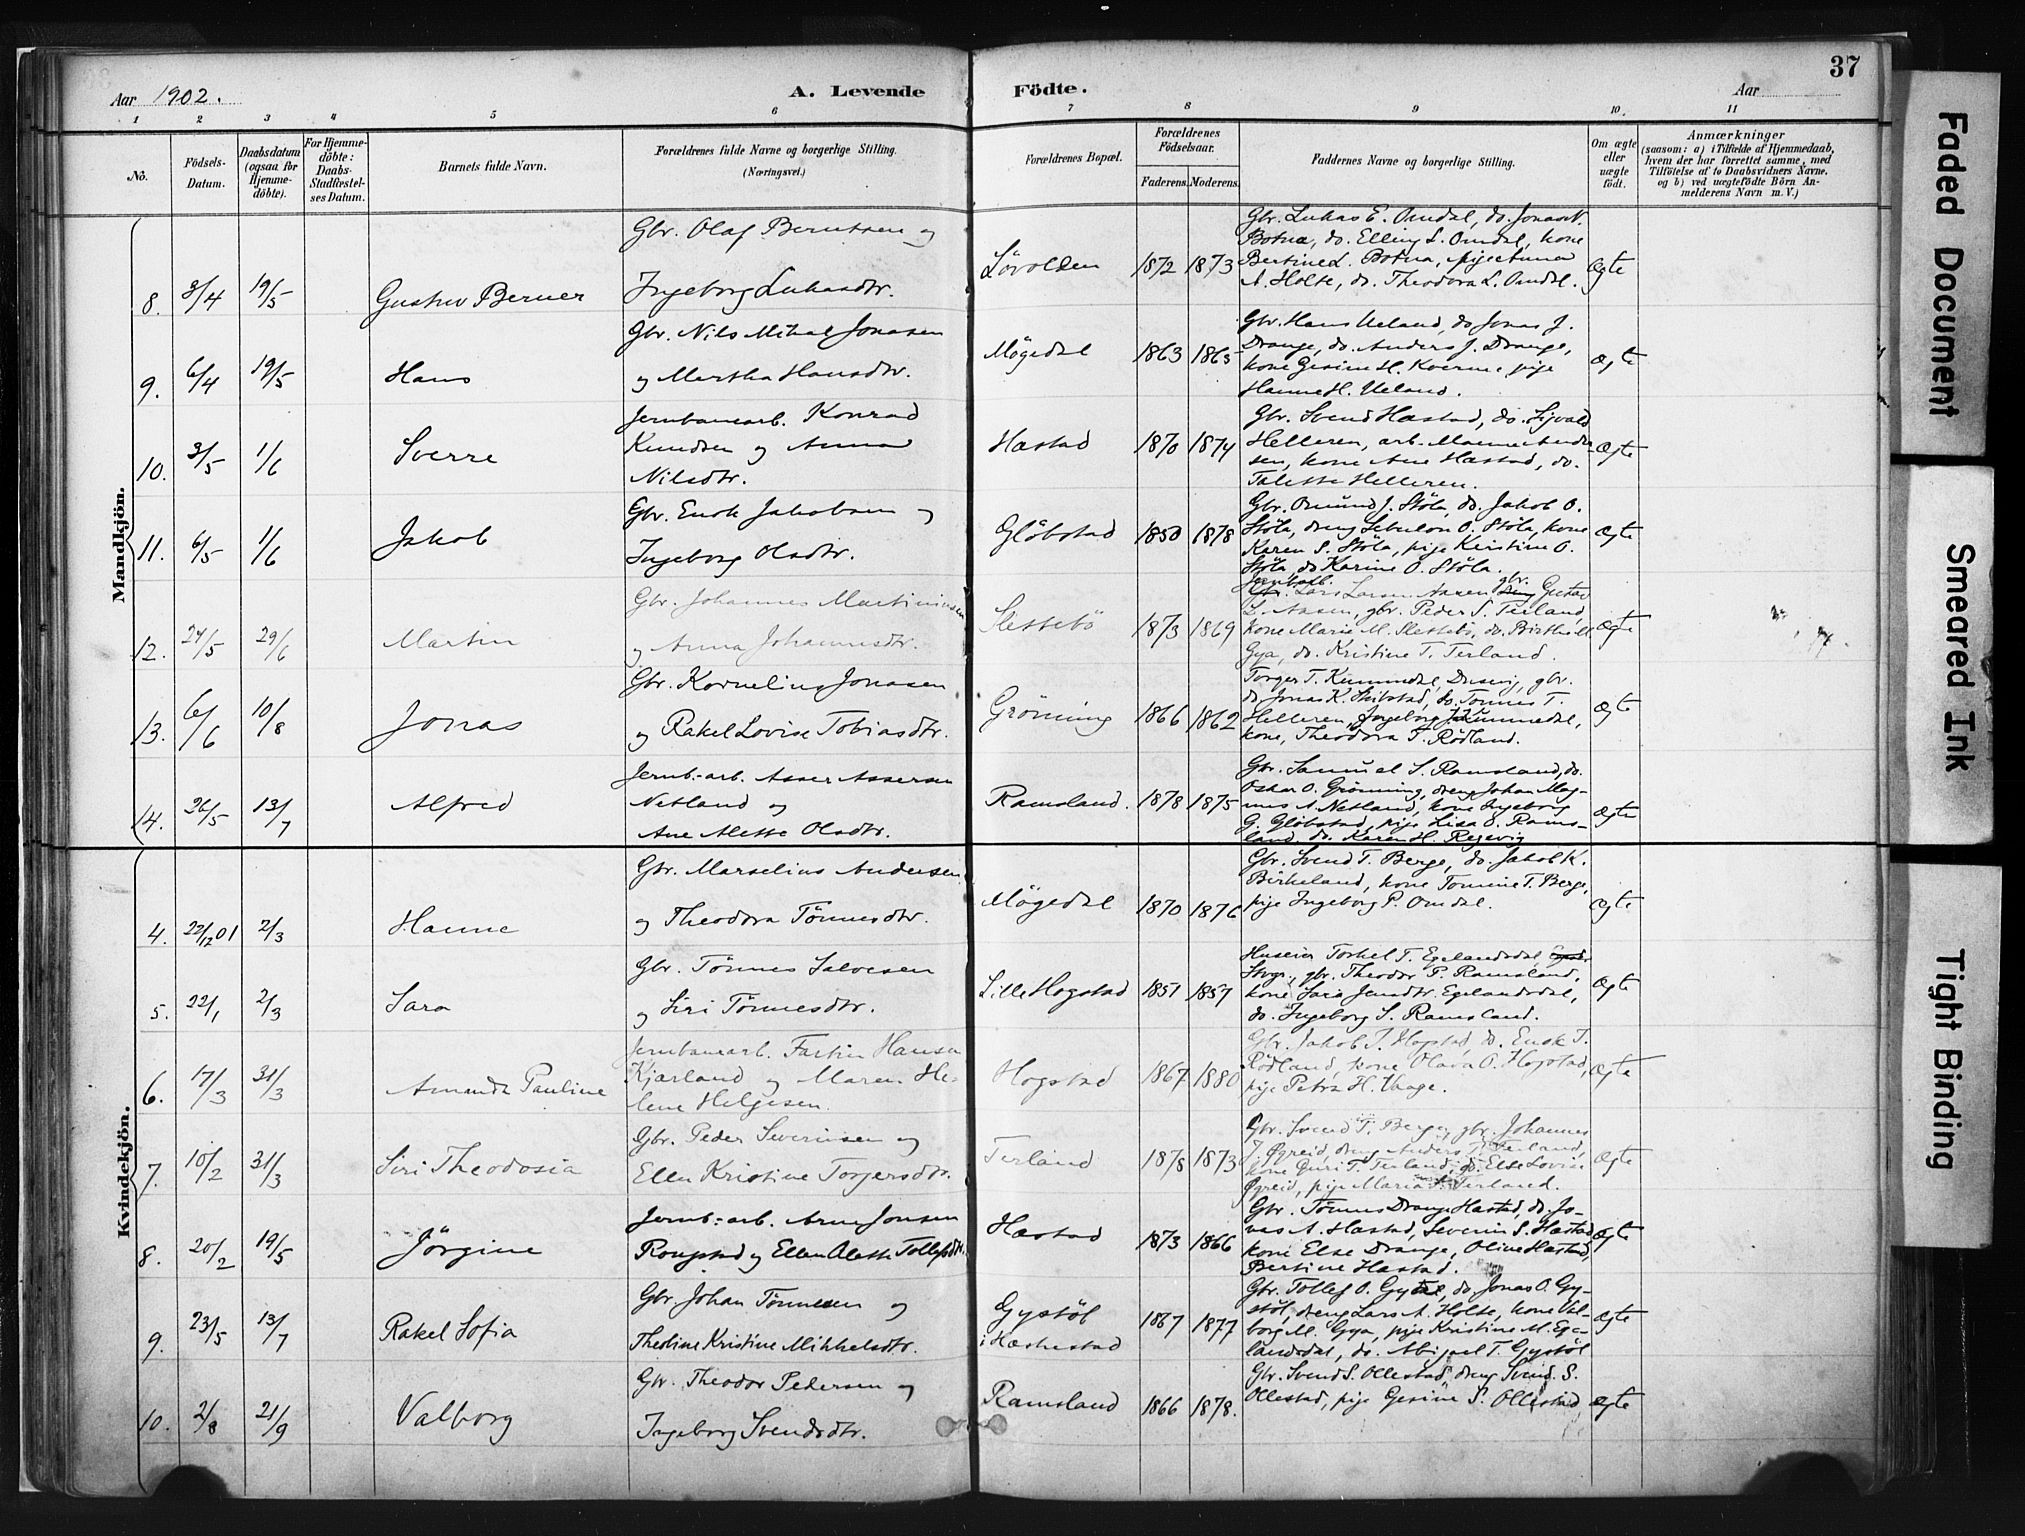 37
Aar 1902.
A. Levende Födte.
Aar
1 2 3 4 5 6 7 8 9 10. 11
No.
Födsels-Datum.
Daabsdatum (ogsaa for Hjemme-döbte).
For Hjemme-döbte: Daabs-Stadfæstel-ses Datum.
Barnets fulde Navn.
Forældrenes fulde Navne og borgerlige Stilling.
(Næringsvei.)
Forældrenes Bopæl.
Forældrenes Födselsaar.
Faderens. Moderens.
Faddernes Navne og borgerlige Stilling.
Om ægte eller uægte födt.
Anmærkninger
(saasom: a) i Tilfælde af Hjemmedaab,
hvem der har forrettet samme, med
Tilföielse af to Daabsvidners Navne.
og b) ved uægtefödte Börn An-
melderens Navn m. V.)
Mandkjön.
8. 3/4 19/5 Gustav Berner
Gbr. Olaf Berntsen og
Ingeborg Lukasdtr.
Lövolden 1872 1873
Gbr. Lukas E. Omdal, do. Jonas N.
Botna, do. Elling L. Omdal, kone
Bertine L. Botna, pige Anna
A. Holte, do. Theodora L. Omdal.
Ægte
9. 6/4 19/5 Hans
Gbr. Nils Mikal Jonasen
og Martha Hansdtr.
Mögedal 1863 1865
Gbr. Hans Ueland, do Jonas J.
Drange, do. Anders J. Drange,
kone Gesine H. Kverme, pige
Hanne H. Ueland.
Ægte
10. 3/5 1/6 Sverre
Jernbanearb. Konrad
Knudsen og Anna
Nilsdtr.
Hæstad 1870 1874
Gbr. Svend Hæstad, do. Sigvald
Helleren, arb. Manne Ander-
sen, kone Ane Hæstad, do.
Talette Helleren.
Ægte
11. 6/5 1/6 Jakob
Gbr. Enok Jakobsen og
Ingeborg Olsdtr.
Glöbstad 1850 1878
Gbr. Omund J. Stöla, do. Jakob O.
Stöla, dreng Sebulon O. Stöla, kone
Karen S. Stöla, pige Kristine O.
Stöla, do Karine O. Stöla.
Ægte
12. 24/5 29/6 Martin
Gbr. Johannes Martininsen
og Anna Johannesdtr.
Slettebö 1873 1869
Jernb.arb. Lars Larsen Aasen gbr. Gustav
L. Aasen, gbr. Peder S. Terland,
kone Marie M. Slettebö, do. Birthe M.
Gya, do. Kristine T. Terland.
Ægte
13. 6/6 10/8 Jonas
Gbr. Kornelius Jonasen
og Rakel Lovise Tobiasdtr.
Grönning 1866 1862
Torger T. Kummedal, gbr.
do Jonas K. Skibstad, do. Tonnes T.
Helleren, Ingeborg Kummedal,
kone, Theodora T. Rödland.
Ægte
14. 26/5 13/7 Alfred
Jernb.-arb. Asser Assersen
Netland og
Ane Alette Olsdtr.
Ramsland. 1878 1875
Gbr. Samuel S. Ramsland, do.
Oskar O. Grönning, dreng Johan Mag-
nus A. Netland, kone Ingeborg
G. Glöbstad, pige Lisa O. Rams-
land, do. Karen H. Regevig
Ægte
Kvindekjön.
4. 22/12 01 2/3 Hanne
Gbr. Marselius Andersen
og Theodora Tönnesdtr.
Mögedal 1870 1876
Gbr. Svend T. Berge, do. Jakob K.
Birkeland, kone Tomine T. Berge,
pige Ingeborg P. Omdal.
Ægte
5. 22/1 2/3 Sara
Gbr. Tönnes Salvesen
og Siri Tönnesdtr.
Lille Hogstad 1851 1857
Huseier Torkel T. Egelandsdal,
Sovgr., gbr. Theodor P. Ramsland,
kone Sara Jensdtr. Egelandsdal,
do. Ingeborg S. Ramsland.
Ægte
6. 17/3 31/3 Amanda Pauline
Jernbanearb. Fartin Hansen
Kjærland og Maren He-
lene Helgesen.
Hogstad 1867 1880
Gbr. Jakob T. Hogstad, do. Enok T.
Rödland, kone Olava O. Hogstad,
pige Petra H. Vaage.
Ægte
7. 10/2 31/3 Siri Theodosia
Gbr. Peder Severinsen og
Ellen Kristine Torgersdtr.
Terland 1878 1873
Gbr. Svend T. Berge, gbr. Johannes
J. Øgreid, dreng Anders T. Terland,
kone Guri T. Terland, do. Else Lovise
Øgreid, pige Maria S. Terland.
Ægte
8. 20/2 19/5 Jörgine
Jernb.-arb. Arne Jonsen
Rongstad og Ellen Aletta Tollefsdtr.
Hæstad 1873 1866
Gbr. Tönnes Drange Hæstad, do. Jo-
nas A. Hæstad, Severin S. Hæstad,
kone Else Drange, Oline Hæstad,
Bertine Hæstad.
Ægte
9. 23/5 13/7 Rakel Sofia
Gbr. Johan Tönnesen og
Theoline Kristine Mikkelsdtr.
Gystöl
i Hæskestad
1867 1877
Gbr. Tollef O. Gystöl, do Jonas O. Gy-
stöl, dreng Lars A. Holte, kone Val-
borg M. Gya, pige Kristine M. Ege-
landsdal, do. Abigael T. Gystöl
Ægte
10. 2/8 21/9 Valborg
Gbr. Theodor Pedersen og
Ingeborg Svendsdtr.
Ramsland 1866 1878.
Gbr. Svend S. Ollestad, dreng Svend S.
Ollestad, pige Gesine S. Ollestad
Ægte
Faded Document
Smeared Ink
Tight Binding